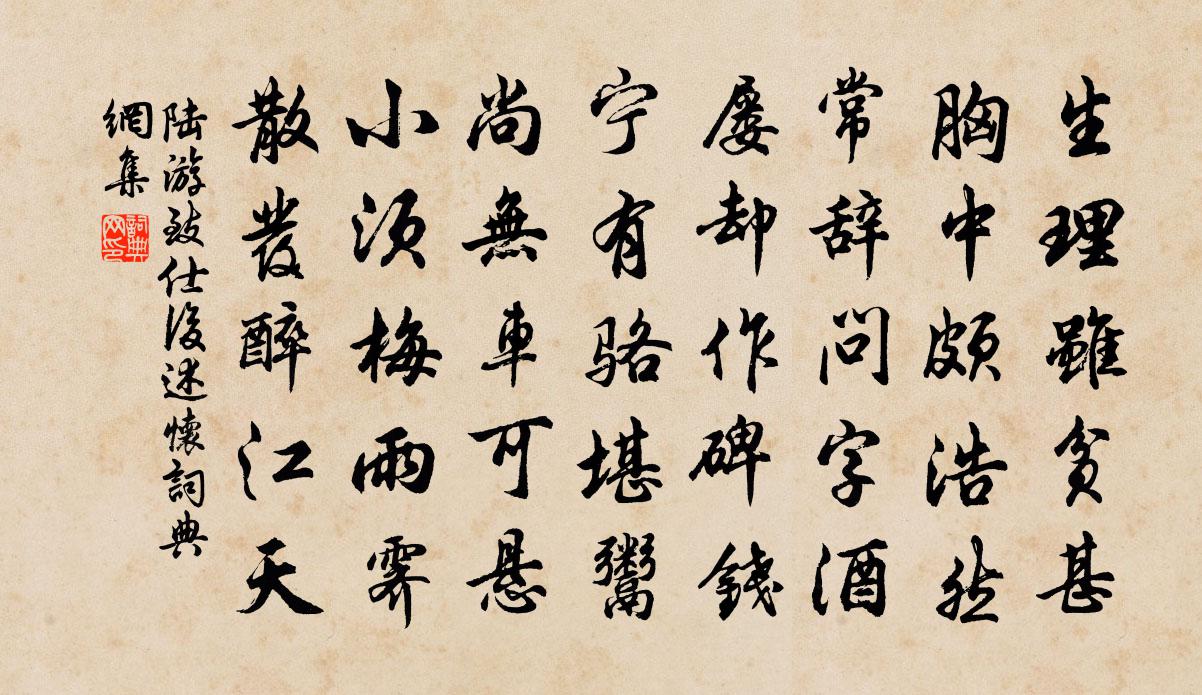 生理雖貧甚
胸中頗浩然
常辞問字酒
屡却作碑錢
宁有骆堪鬻
尚無車可懸
小须梅雨霁
散发醉江天
陆游致仕後述懷詞典
網集
詞典网印